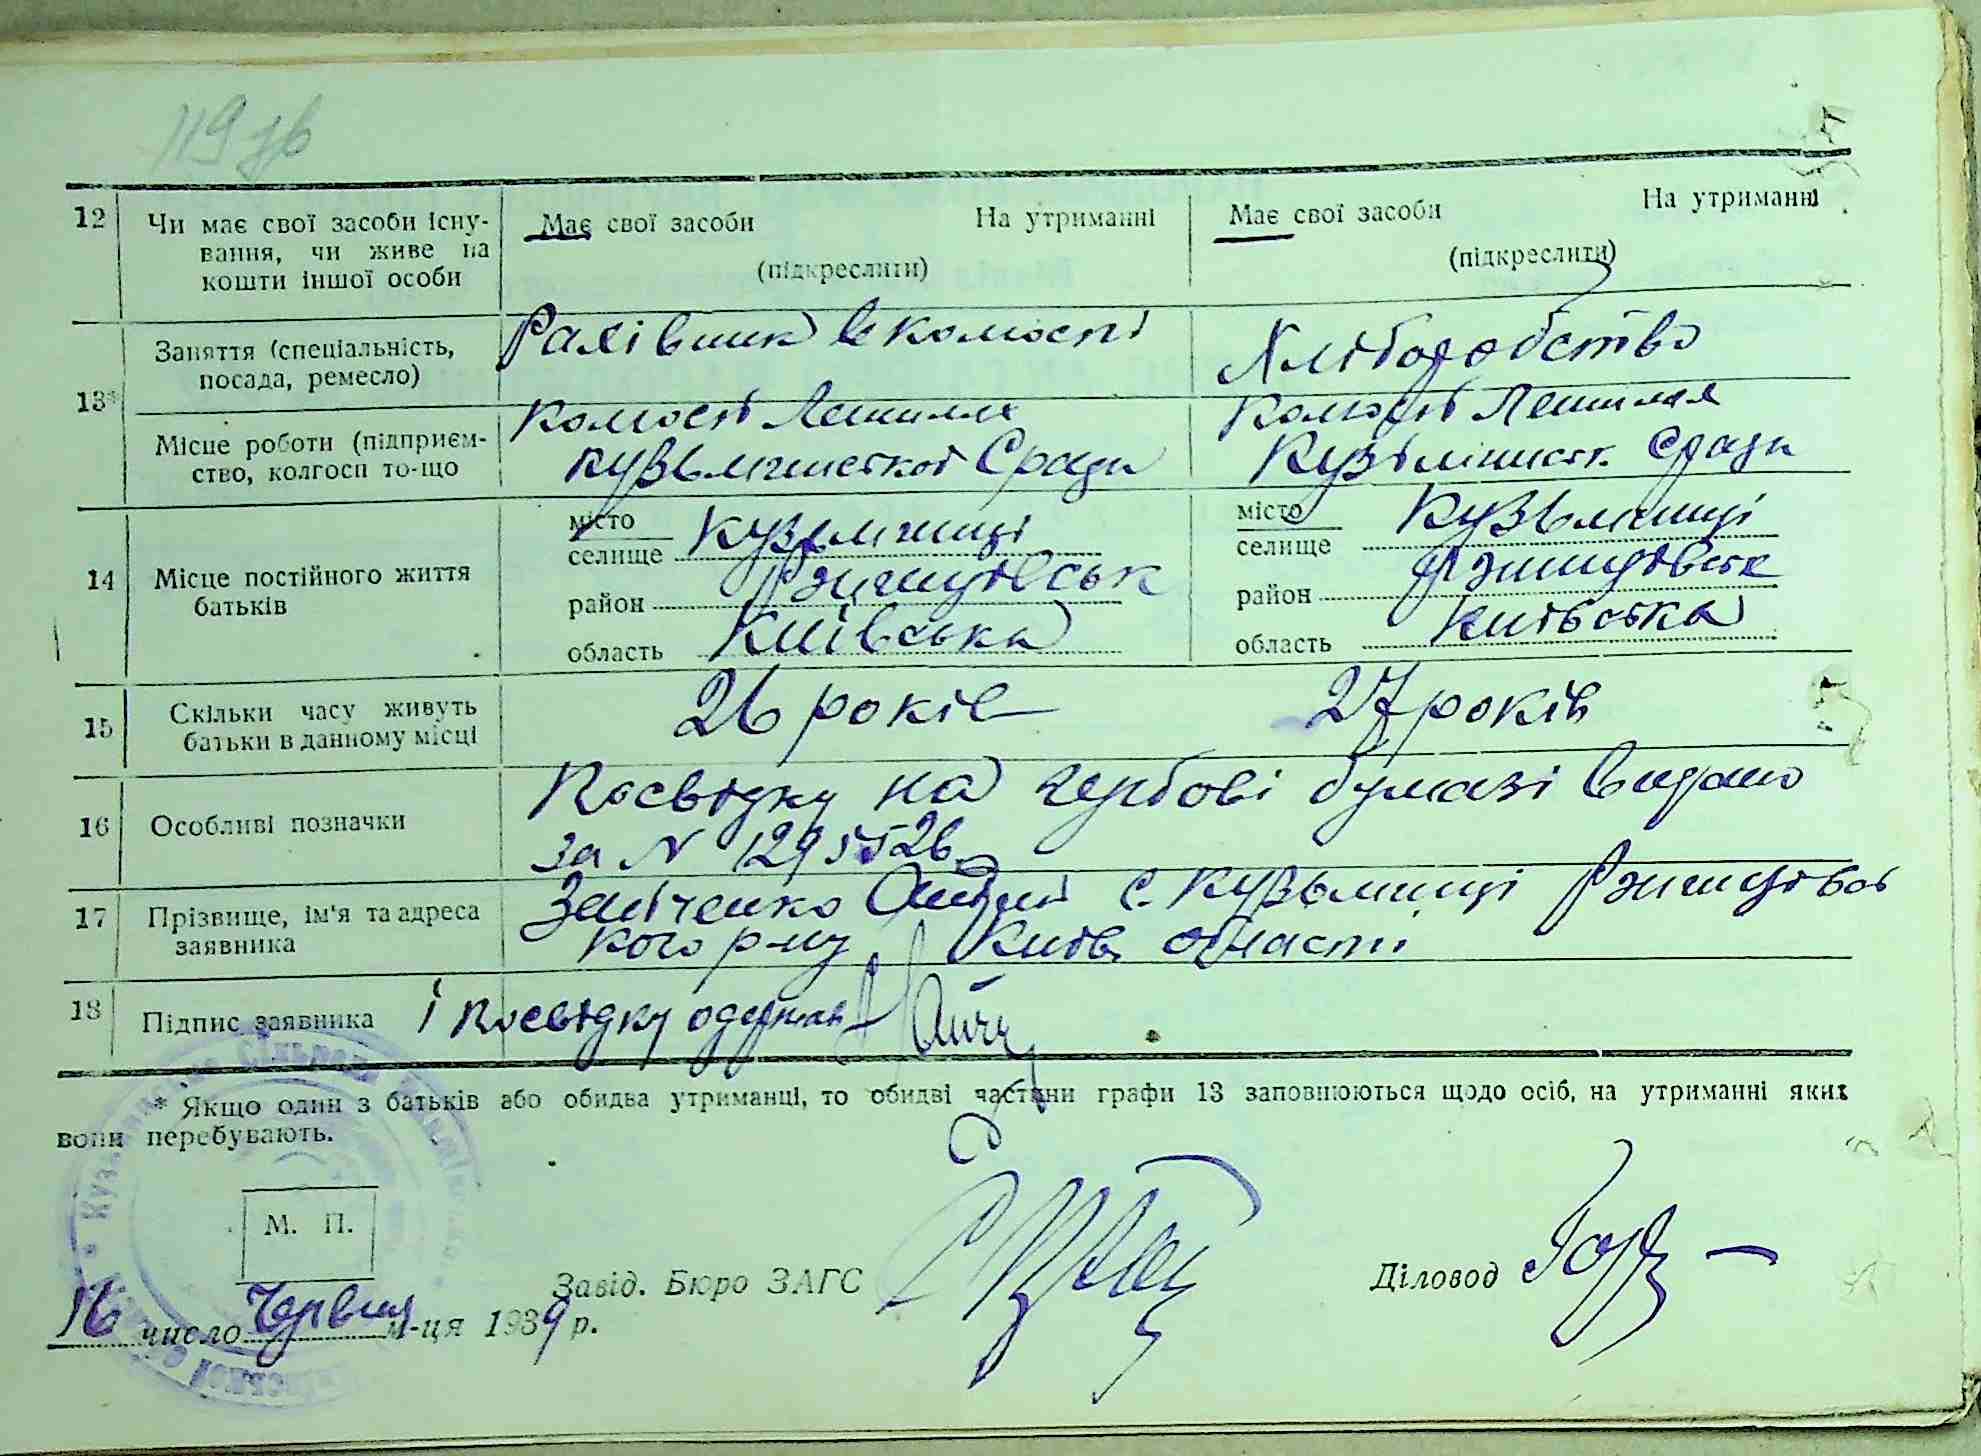 119 зв
12 Чи має свої засоби існу- Має свої засоби На утриманні Має свої засоби На утриманні
вання, чи живе на
кошти іншої особи (підкреслити) (підкреслити)
Заняття (спеціальність, Рахівник в колгоспі Хліборобство
посада, ремесло)
13*
Місце роботи (підприєм- Колгосп Колгосп
ство, колгосп то-що Сради Сради
14 Місце постійного життя
батьків
місто
селище Кузьминці
район Ржищівськ
область Київська
місто
селище Кузьминці
район Ржищівськ
область Київська
15 Скільки часу живуть 26 років 27 років
батьки в данному місці
16 Особливі позначки Посвідку на гербові бумазі видано
за N 1295526
17 Прізвище, ім'я та адреса Зеніченко с. Кузьминці Ржищівсь
заявника кого р-ну Київ області
18 Підпис заявника і Посвідку одержав
* Якщо один з батьків або обидва утриманці, то обидві частини графи 13 заповнюються щодо осіб, на утриманні яких
вони перебувають.
М. П.
Завід. Бюро ЗАГС Діловод
16 число Червня м-ця 1939 р.